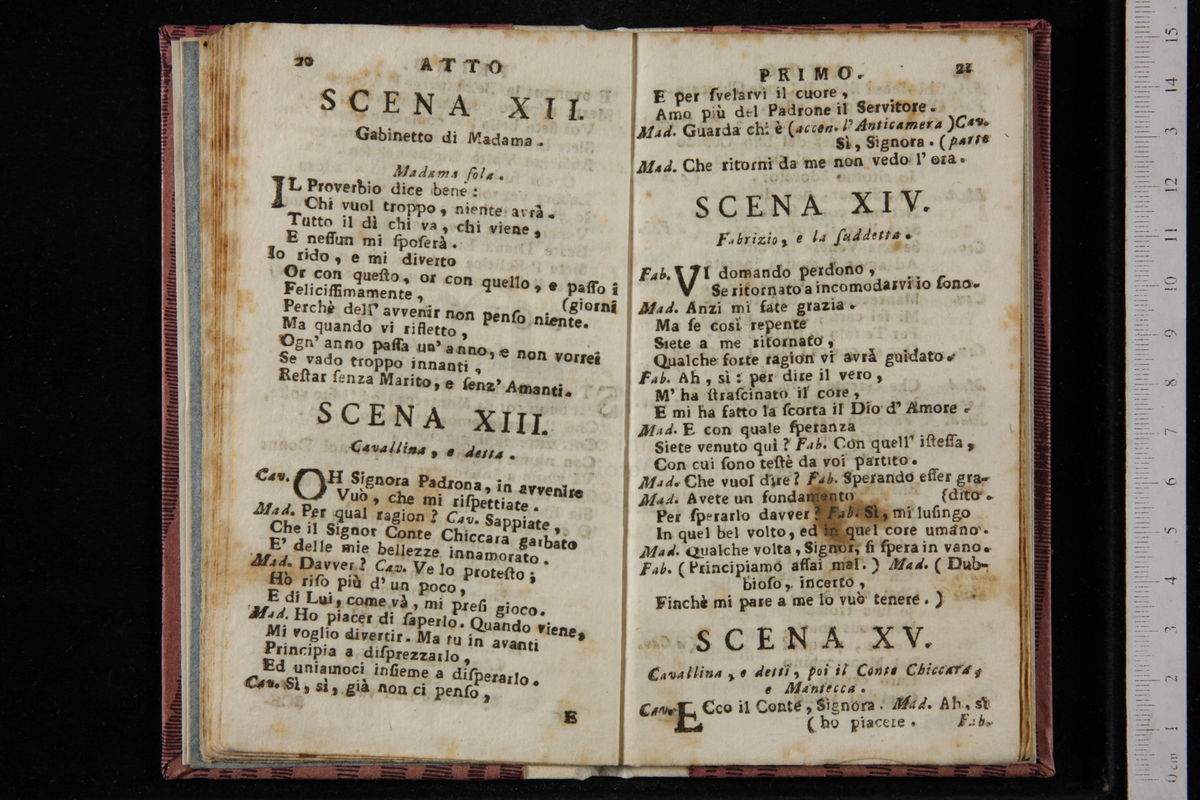 20 ATTO
SCENA XII.
Gabinetto di Madama.
Madama ſola.
IL Proverbio dice bene:
Chi vuol troppo, niente avrà.
Tutto il dì chi va, chi viene,
E neſſun mi ſpoſerà.
Io rido, e mi diverto
Or con queſto, or con quello, e paſſo i
Feliciſſimamente, (giorni
Perchè dell' avvenir non penſo niente.
Ma quando vi rifletto,
Ogn' anno paſſa un' anno, e non vorrei
Se vado troppo innanti,
Reſtar ſenza Marito, e ſenz' Amanti.
SCENA XIII.
Cavallina, e detta.
Cav. OH Signora Padrona, in avvenire
Vuò, che mi riſpettiate.
Mad. Per qual ragion? Cav. Sappiate,
Che il Signor Conte Chiccara garbato
E' delle mie bellezze innamorato.
Mad. Davver? Cav. Ve lo proteſto;
Hò riſo più d' un poco,
E di Lui, come và, mi preſi gioco.
Mad. Ho piacer di ſaperlo. Quando viene,
Mi voglio divertir. Ma tu in avanti
Principia a diſprezzarlo,
Ed uniamoci inſieme a diſperarlo.
Cav. Sì, sì, già non ci penſo,
E
PRIMO. 21
E per ſvelarvi il cuore,
Amo più del Padrone il Servitore.
Mad. Guarda chi è (accen. l' Anticamera) Cav.
Sì, Signora. (parte
Mad. Che ritorni da me non vedo l' ora.
SCENA XIV.
Fabrizio, e la ſuddetta.
Fab. VI domando perdono,
Se ritornato a incomodarvi io ſono.
Mad. Anzi mi fate grazia.
Ma ſe così repente
Siete a me ritornato,
Qualche forte ragion vi avrà guidato.
Fab. Ah, sì: per dire il vero,
M' ha ſtraſcinato il core,
E mi ha fatto la ſcorta il Dio d' Amore.
Mad. E con quale ſperanza
Siete venuto quì? Fab. Con quell' iſteſſa,
Con cui ſono teſtè da voi partito.
Mad. Che vuol dire? Fab. Sperando eſſer gra-
Mad. Avete un fondamento (dito.
Per ſperarlo davver? Fab. Sì, mi luſingo
In quel bel volto, ed in quel core umano.
Mad. Qualche volta, Signor, ſi ſpera in vano.
Fab. (Principiamo aſſai mal.) Mad. (Dub-
bioſo, incerto,
Finchè mi pare a me lo vuò tenere.)
SCENA XV.
Cavallina, e detti, poi il Conte Chiccara,
e Mantecca.
Cav. ECco il Conte, Signora. Mad. Ah, sì
(ho piacere. Fab.
0 cm 1 2 3 4 5 6 7 8 9 10 11 12 13 14 15